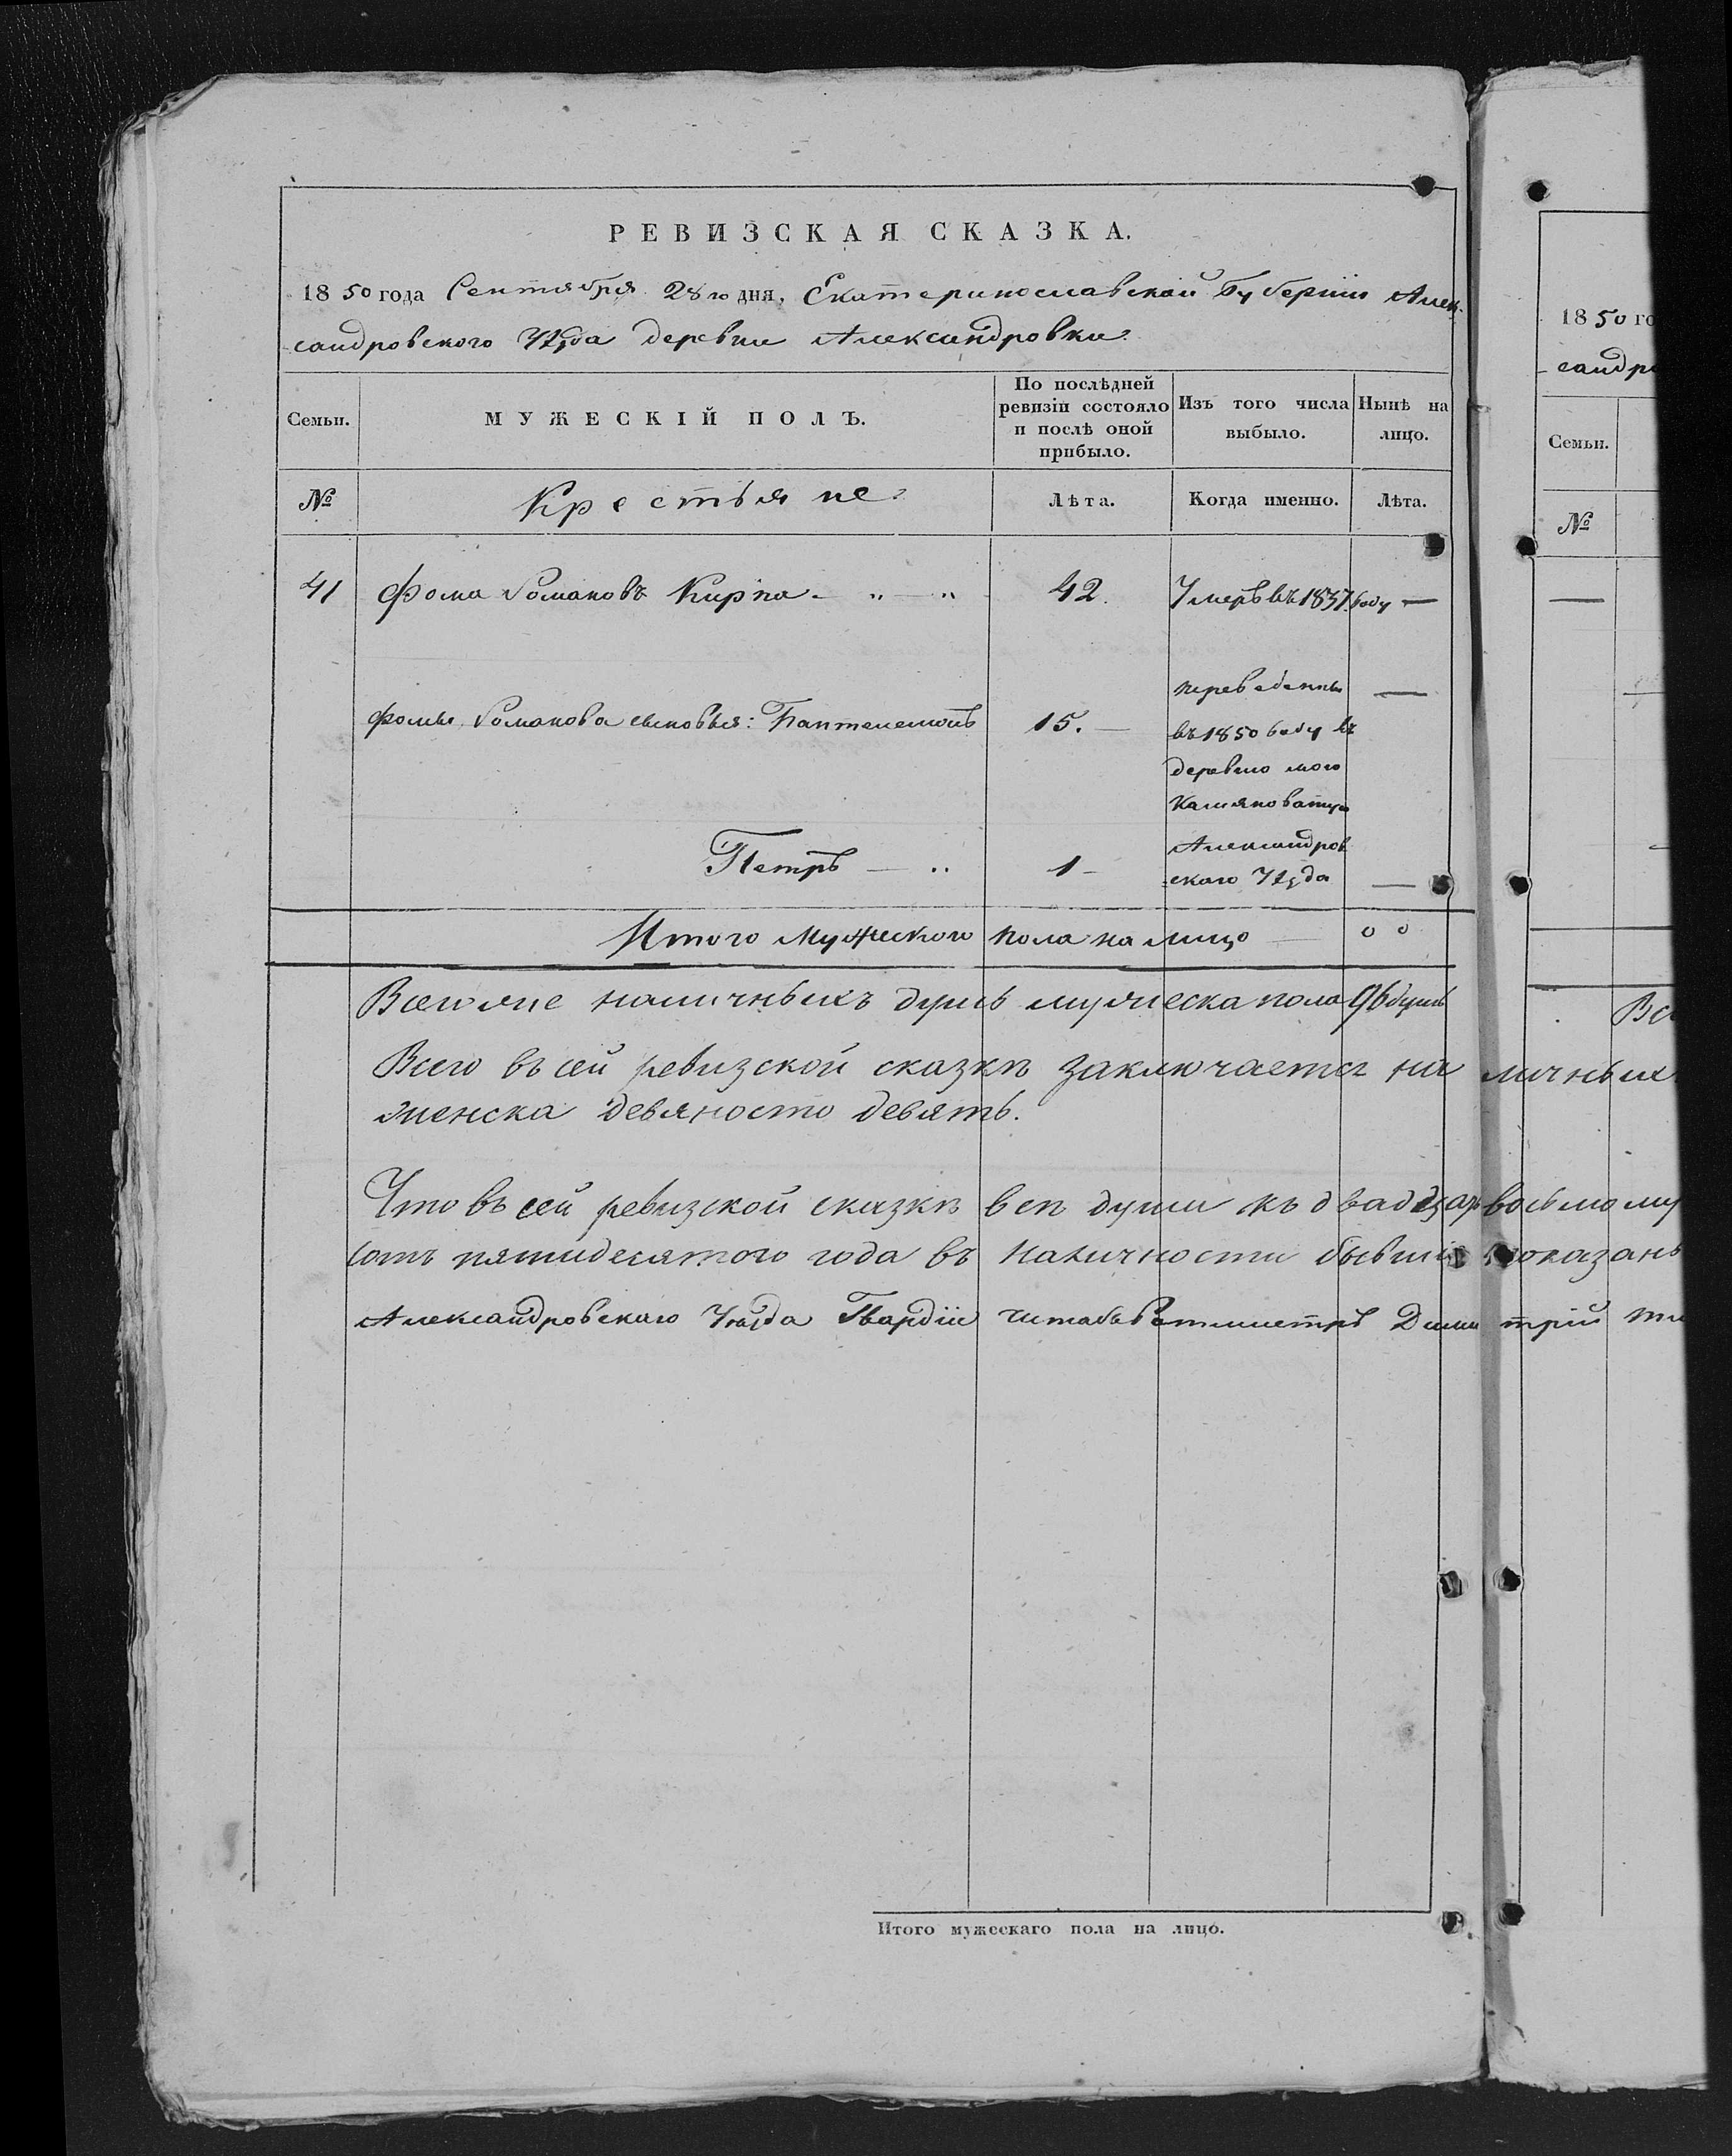 РЕВИЗСКАЯ СКАЗКА.
1850 года Сентября 28го дня, Екатеринославской Губерніи Алек-
сандровского Уѣзда деревни Александровки
Семьи.
МУЖЕСКІЙ ПОЛЪ.
По послѣдней ревизіи состояло и послѣ оной прибыло.
Изъ того числа выбыло.
Нынѣ на лицо.
№
Крестьяне
Лѣта.
Когда именно.
Лѣта.
41 Фома Романовъ Кирпа - " — " 42. Умеръ въ 1837 году —
Фомы Романова сыновья: Пантелемонъ 15. —
переведенны —
въ 1850 году въ
деревню мою
Камяноватую
Петръ — .. 1 -
Александров
скаго Уѣзда —
Итого Мужеского пола на лицо — 0 0
Всего же наличныхъ душъ мужеска пола 96 душъ
Всего въ сей ревизской сказкѣ заключается на личныхъ
женска девяносто девять.
Что въ сей ревизской сказкѣ всѣ души къ двадцать восьмому
сотъ пятидесятого года въ наличности бывшія показаны
Александровскаго Уѣзда Гвардіи Штабъ Ротмистръ Дими трій
Итого мужескаго пола на лицо.
1850 го
сандро
Семьи.
№
—
Все